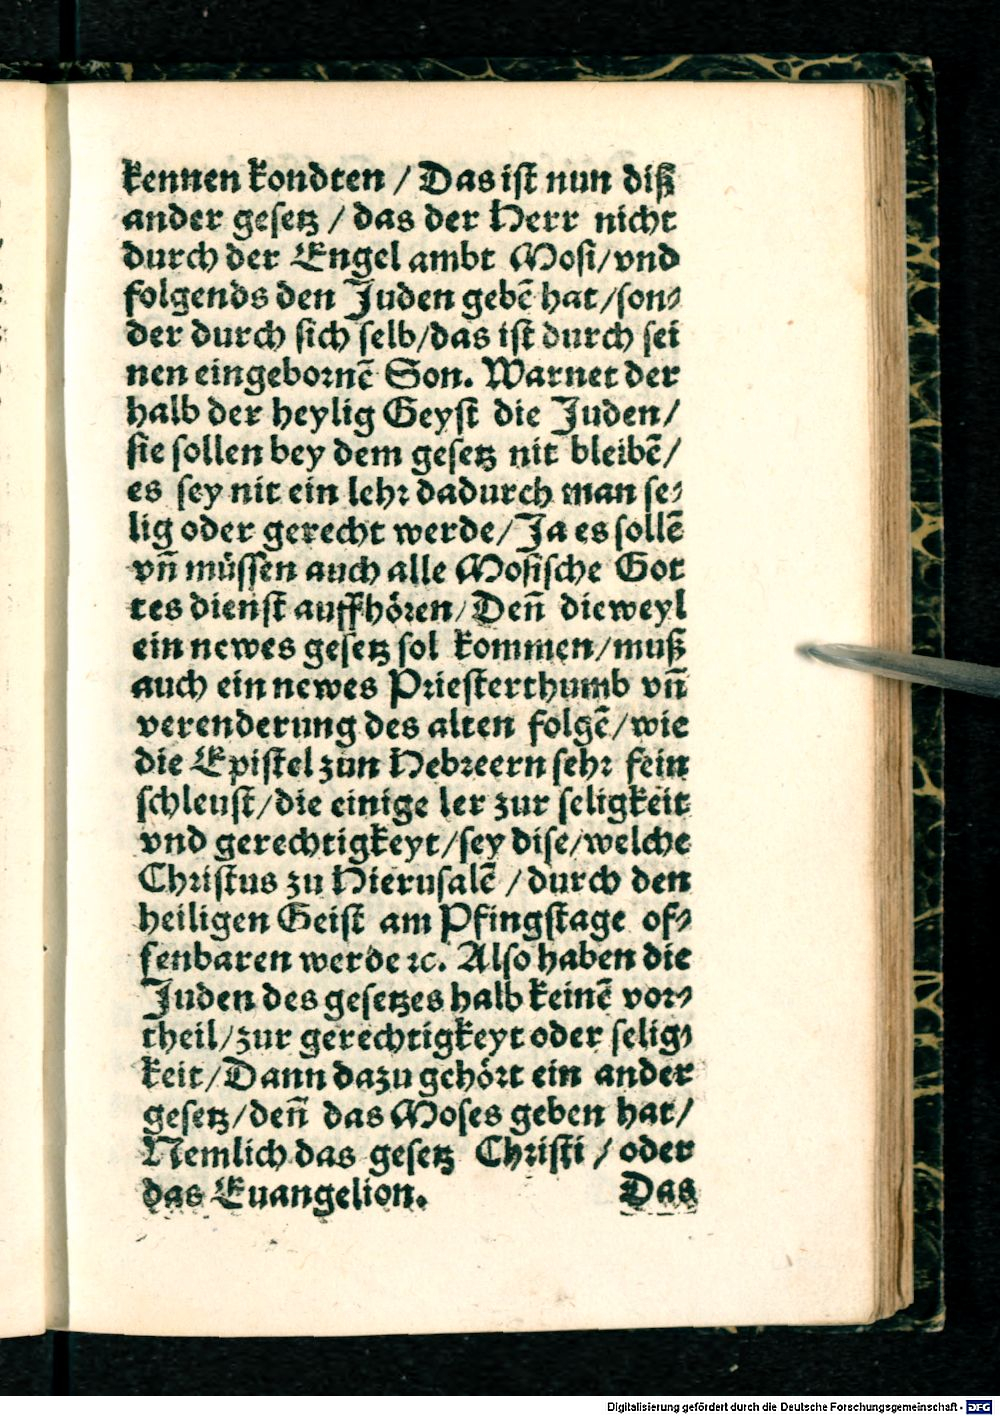 kennen kondten / Das ist nun diß
ander gesetz / das der Herr nicht
durch der Engel ambt Mosi/vnd
folgends den Juden gebē hat/son⸗
der durch sich selb/das ist durch sei
nen eingebornē Son. Warnet der
halb der heylig Geyst die Juden/
sie sollen bey dem gesetz nit bleibē/
es sey nit ein lehr dadurch man se⸗
lig oder gerecht werde/Ja es sollē
vn̄ müssen auch alle Mosische Got
tes dienst auffhören/Den̄ dieweyl
ein newes gesetz sol kommen/muß
auch ein newes Priesterthumb vn̄
verenderung des alten folgē/wie
die Epistel zun Hebreern sehr fein
schleust/die einige ler zur seligkeit
vnd gerechtigkeyt/sey dise/welche
Christus zu Hierusalē /durch den
heiligen Geist am Pfingstage of⸗
fenbaren werde ꝛc. Also haben die
Juden des gesetzes halb keinē vor⸗
theil/zur gerechtigkeyt oder selig⸗
keit/Dann dazu gehört ein ander
gesetz/den̄ das Moses geben hat/
Nemlich das gesetz Christi / oder
das Euangelion. Das
Digitalisierung gefördert durch die Deutsche Forschungsgemeinschaft - DFG